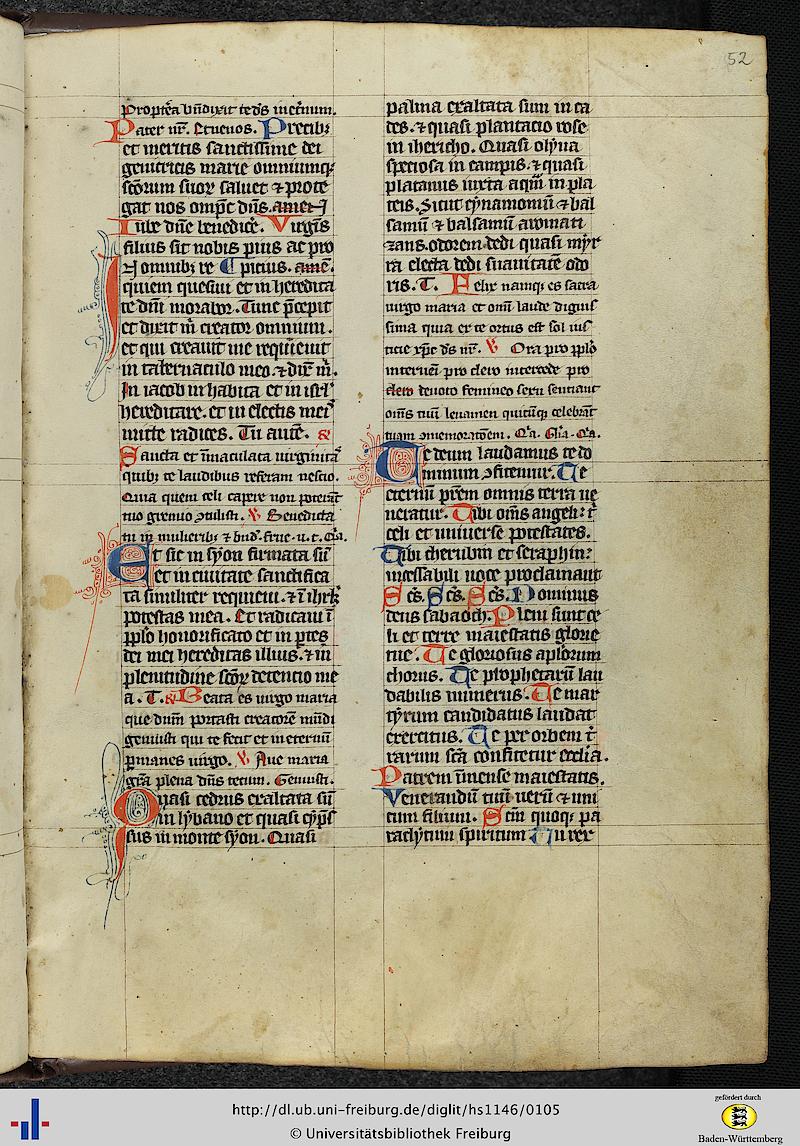 52
Propt̃ea bñdixit te dˀs in et̃num.
Pater nr̄. Et ue nos. Precibꝫ
et meritis sanctissime dei
genitricis marie omniumqꝫ
sc̃orum suoꝝ saluet ⁊ prote
gat nos omp̃c dñs. amen
Iube dñe benedic̃e. Virgĩs
filius sit nobis pius ac pro
omnibꝫ re picius. amẽ.
In quiem quesiui et in heredita
te dm̃i morabor. Tunc p̃cepit
et dixit m̃ creator omnium.
et qui creauit me requieuit
in tabernaculo meo. ⁊ dix̃ m̃.
In iacob inhabita et in isrl̃
hereditare. et in electis meiˀ
mitte radices. Tu autẽ. ℟
Sancta et ĩmaculata uirginitãˀ
quibꝫ te laudibus referam nescio.
Quia quem celi capere non poterãt
tuo gremio ꝯtulisti. ℣ Benedicta
tu in mulieribꝫ ⁊ bñd. fruc. u. t. Q̃a.
Et sic in syon firmata sũ
et in ciuitate sanctifica
ta similiter requieui. ⁊ ĩ ihrl̃
potestas mea. Et radicaui ĩ
pp̃lo honorificato et in ꝑtes
dei mei hereditas illius. ⁊ in
plenitudine sc̃oꝝ detencio me
a. T. ℟ Beata es uirgo maria
que dnm̃ portasti creatorẽ mũdi
genuisti qui te fecit et in eternũ
ꝑmanes uirgo. ℣ Aue maria
gr̃a plena dñs tecum. Genuisti.
Quasi cedrus exaltata sũ
in lybano et quasi cyp̃s
sus in monte syon. Quasi
palma exaltata sum in ca
des. ⁊ quasi plantacio rose
in ihericho. Quasi olyua
speciosa in campis. ⁊ quasi
platanus iuxta aquã in pla
teis. Sicut cynamomũ ⁊ bal
samũ ⁊ balsamũ aromati
zans. odorem dedi quasi myr
ra electa dedi suauitatẽ odo
ris. T. Felix namqꝫ es sacra
uirgo maria et omĩ laude dignis
sima quia ex te ortus est sol ius
ticie xp̃c dˀs nr̄. ℣ Ora pro pp̃lo
interueni pro clero intercede pro
clero deuoto femineo sexu senciant
om̃s tuũ leuamen quicũqꝫ celebrãt
tuam ꝯmemorat̃oem. Q̃a. Gl̃ia. Q̃a.
Te deum laudamus te do
minum ꝯfitemur. Te
eternũ pr̃em omnis terra ue
neratur. Tibi om̃s angeli: t̃
celi et uniuerse potestates.
Tibi cherubin et seraphin:
incessabili uoce proclamant
Sc̃s. Sc̃s. Sc̃s. Dominus
deus sabaoch. Pleni sunt ce
li et terre maiestatis glorie
tue. Te gloriosus aplorum
chorus. Te prophetarũ lau
dabilis numerus. Te mar
tyrum candidatus laudat
exercitus. Te per orbem t̃
rarum sc̃a confitetur ecclia.
Patrem ĩmense maiestatis.
Venerandũ tuũ uerũ ⁊ uni
cum filium. Sc̃m quoqꝫ pa
raclytum spiritum Tu rex
http://dl.ub.uni-freiburg.de/diglit/hs1146/0105
© Universitätsbibliothek Freiburg
gefördert durch
Baden-Württemberg